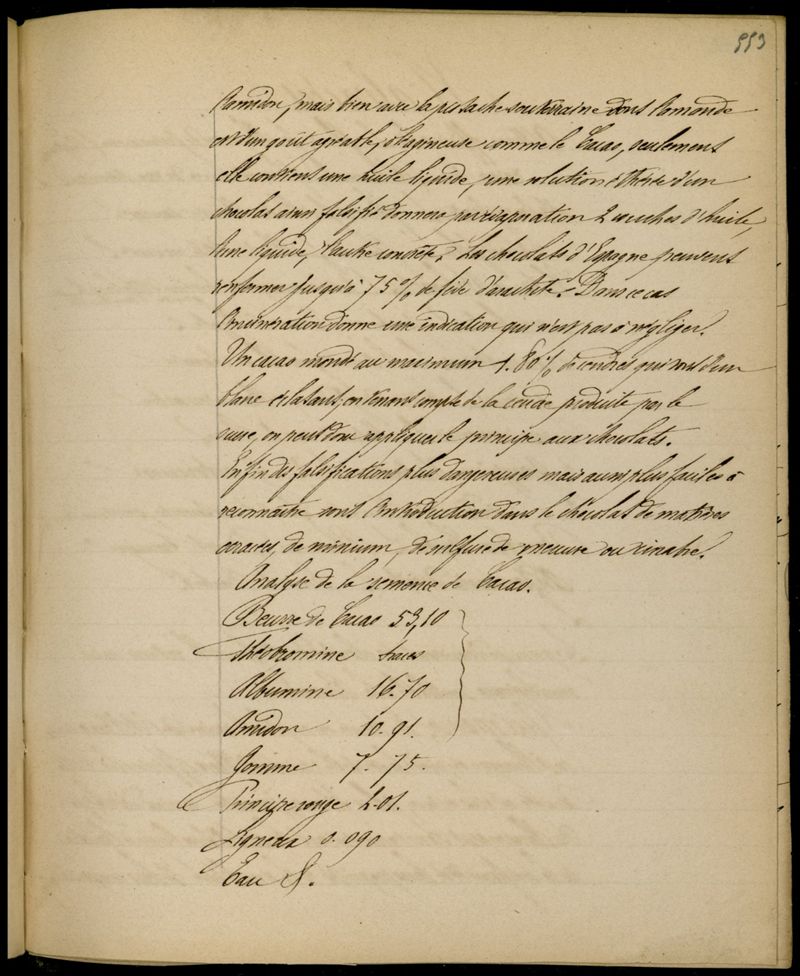 553
l'amidon, mais bien avec la pistache souterraine dont l'amande
est d'un goût agréable, oléagineuse comme le Cacao, seulement
elle contient une huile liquide, une solution éthérée d'un
chocolat ainsi falsifié donnera par évaporation 2 couches d'huile,
l'une liquide, l'autre concrète. Les chocolats d'Espagne peuvent
renfermer jusqu'à 75 % de d'arachide. Dans ce cas
l'incinération donne une indication qui n'est pas à négliger.
Un cacao mondé au maximum 1.80 % de cendres qui sont d'un
blanc éclatant; en tenant compte de la cendre produite par le
sucre, on peut donc appliquer le principe aux chocolats.
Enfin des falsifications plus dangereuses mais aussi plus faciles à
reconnaître sont l'introduction dans le chocolat de matières
ocracées, de minium, de sulfure de mercure ou cinabre.
Analyse de la semence de Cacao.
Beurre de Cacao 53,10
Théobromine traces
Albumine 16.70
Amidon 10.91.
Gomme 7.75.
Principe rouge 2.01.
Ligneux 0.090
Eau